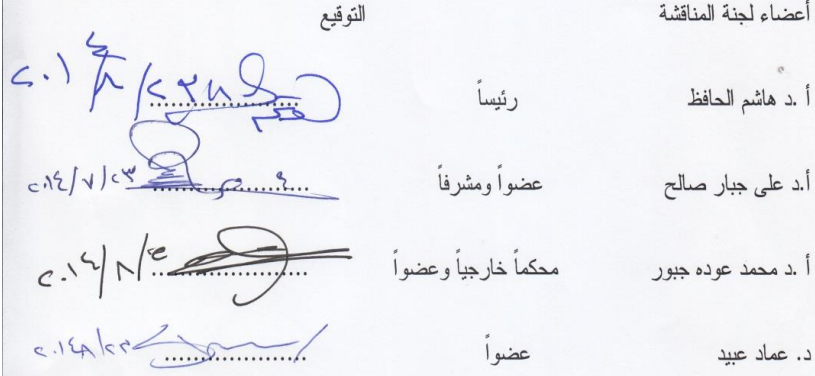 أعضاء لجنة المناقشة التوقيع
أ.د هاشم الحافظ رئيساً
أ.د على جبار صالح عضواً ومشرفاً ٢٠١٤/٧/٢٣
أ.د محمد عوده جبور محكماً خارجياً وعضواً
د. عماد عبيد عضواً